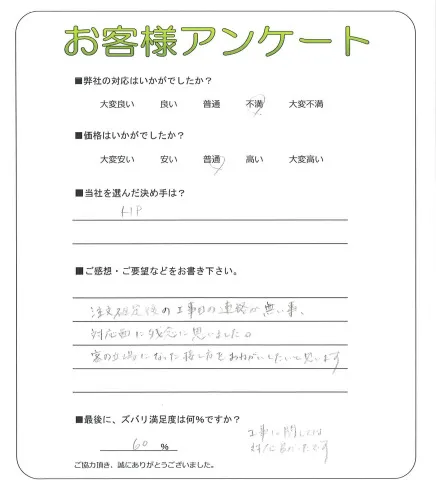 お客様アンケート
■弊社の対応はいかがでしたか？
大変良い 良い 普通 不満 大変不満
■価格はいかがでしたか？
大変安い 安い 普通 高い 大変高い
■当社を選んだ決め手は？
HP
■ご感想・ご要望などをお書き下さい。
注文確定後の工事日の連絡が無い事、
対応面に残念に思いました。
客の立場になった接し方をおねがいしたいと思います
■最後に、ズバリ満足度は何%ですか？
60 %
工事に関しては
対応良かったです
ご協力頂き、誠にありがとうございました。